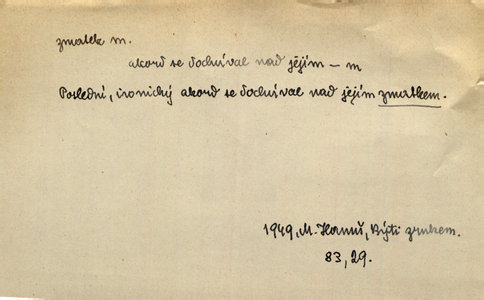 zmatek m.
akord se dochvíval nad jejím – m
Poslední, ironický akord se dochvíval nad jejím zmatkem.
1949, M. Hanuš, Býti zrnkem.
83, 29.